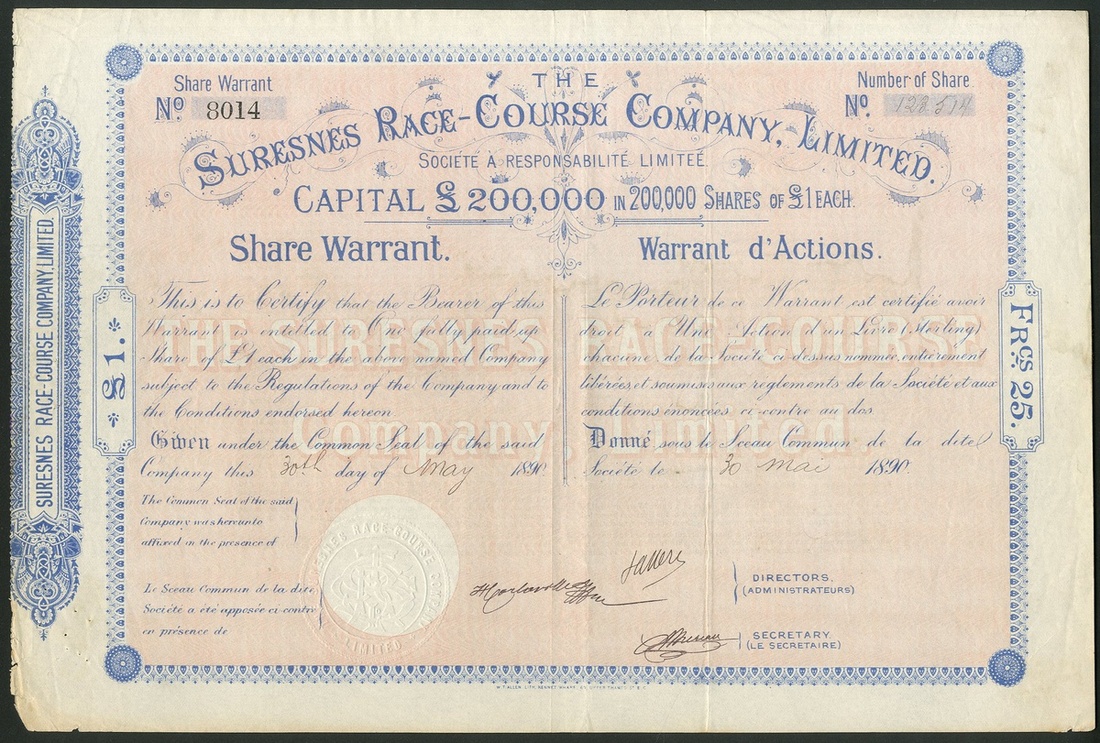 SURESNES RACE-COURSE COMPANY, LIMITED.
Share Warrant
No. 8014
Number of Share
No. 128514
THE
SURESNES RACE-COURSE COMPANY, LIMITED.
SOCIÉTÉ À RESPONSABILITÉ LIMITÉE.
CAPITAL £200,000 IN 200,000 SHARES OF £1 EACH.
Share Warrant.
This is to Certify that the Bearer of this
Warrant is entitled to One fully paid up
Share of £1 each in the above named Company
subject to the Regulations of the Company and to
the Conditions endorsed hereon.
Given under the Common Seal of the said
Company this 30th day of May 1890
Warrant d'Actions.
Le Porteur de ce Warrant est certifié avoir
droit à Une Action d'un Livre (Sterling)
chacune de la Société ci-dessus nommée, entièrement
libérées, et soumises aux reglements de la Société et aux
conditions énoncées ci-contre au dos.
Donné, sous le Sceau Commun de la dite
Société le 30 Mai 1890.
£1.
FRCS 25.
THE SURESNES RACE-COURSE
Company, Limited.
The Common Seal of the said
Company was hereunto
affixed in the presence of
Le Sceau Commun de la dite
Société a été apposée ci contre
en présence de
SURESNES RACE-COURSE COMPANY
LIMITED
DIRECTORS.
(ADMINISTRATEURS)
SECRETARY.
(LE SECRETAIRE)